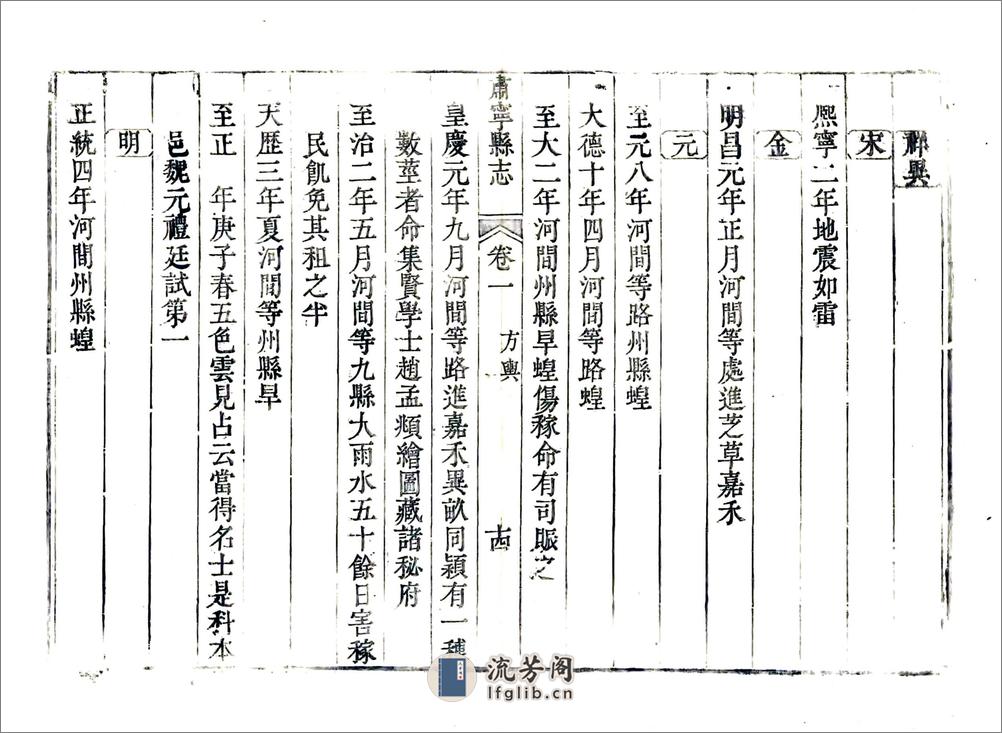 祥異
宋
熙寧二年地震如雷
金
明昌元年正月河間等處進芝草嘉禾
元
至元八年河間等路州縣蝗
大德十年四月河間等路蝗
至大二年河間州縣旱蝗傷稼命有司賑之
肅寧縣志
卷一
方輿
十四
皇慶元年九月河間等路進嘉禾異畝同穎有一穗
數莖者命集賢學士趙孟頫繪圖藏諸秘府
至治二年五月河間等九縣大雨水五十餘日害稼
民飢免其租之半
天歷三年夏河間等州縣旱
至正 年庚子春五色雲見占云當得名士是科本
邑魏元禮廷試第一
明
正統四年河間州縣蝗
流芳阁
lfglib.cn